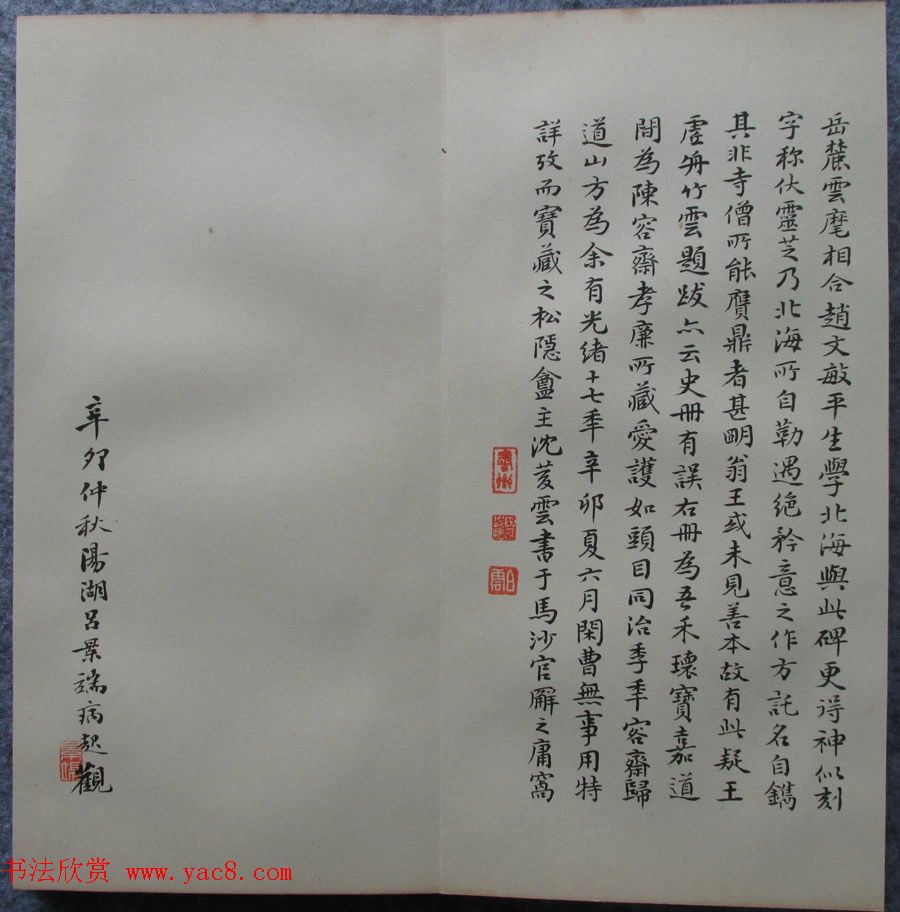 岳麓雲麾相合趙文敏平生學北海與此碑更得神似刻
字称伏靈芝乃北海所自勒遇絕矜意之作方託名自鐫
其非寺僧所能贋鼎者甚明翁王或未見善本故有此疑王
虛舟竹雲題跋亦云史冊有誤右冊為吾禾瓌寶嘉道
間為陳容齋孝廉所藏愛護如頭目同治季年容齋歸
道山方為余有光緒十七年辛卯夏六月閑曹無事用特
詳攷而寶藏之松隱盦主沈雲書于馬沙官廨之庸窩
辛卯仲秋陽湖呂景端病起觀
书法欣赏 www.yac8.com